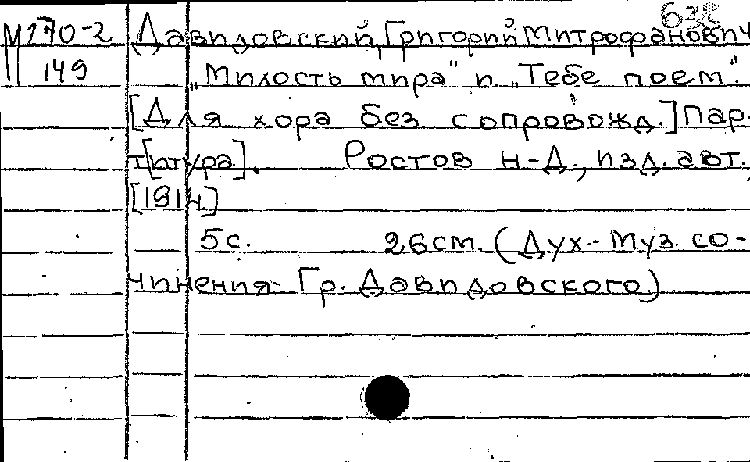 М270-2 Давидовский, Григорий Митрофанович
149 „Милость мира“ и „Тебе поем“.
[Для хора без сопровожд.] Пар-
т[итура]. Ростов н-Д., изд. авт.,
[1914]
5 с. 26 см. (Дух.- муз. со-
чинения Гр. Давидовского)